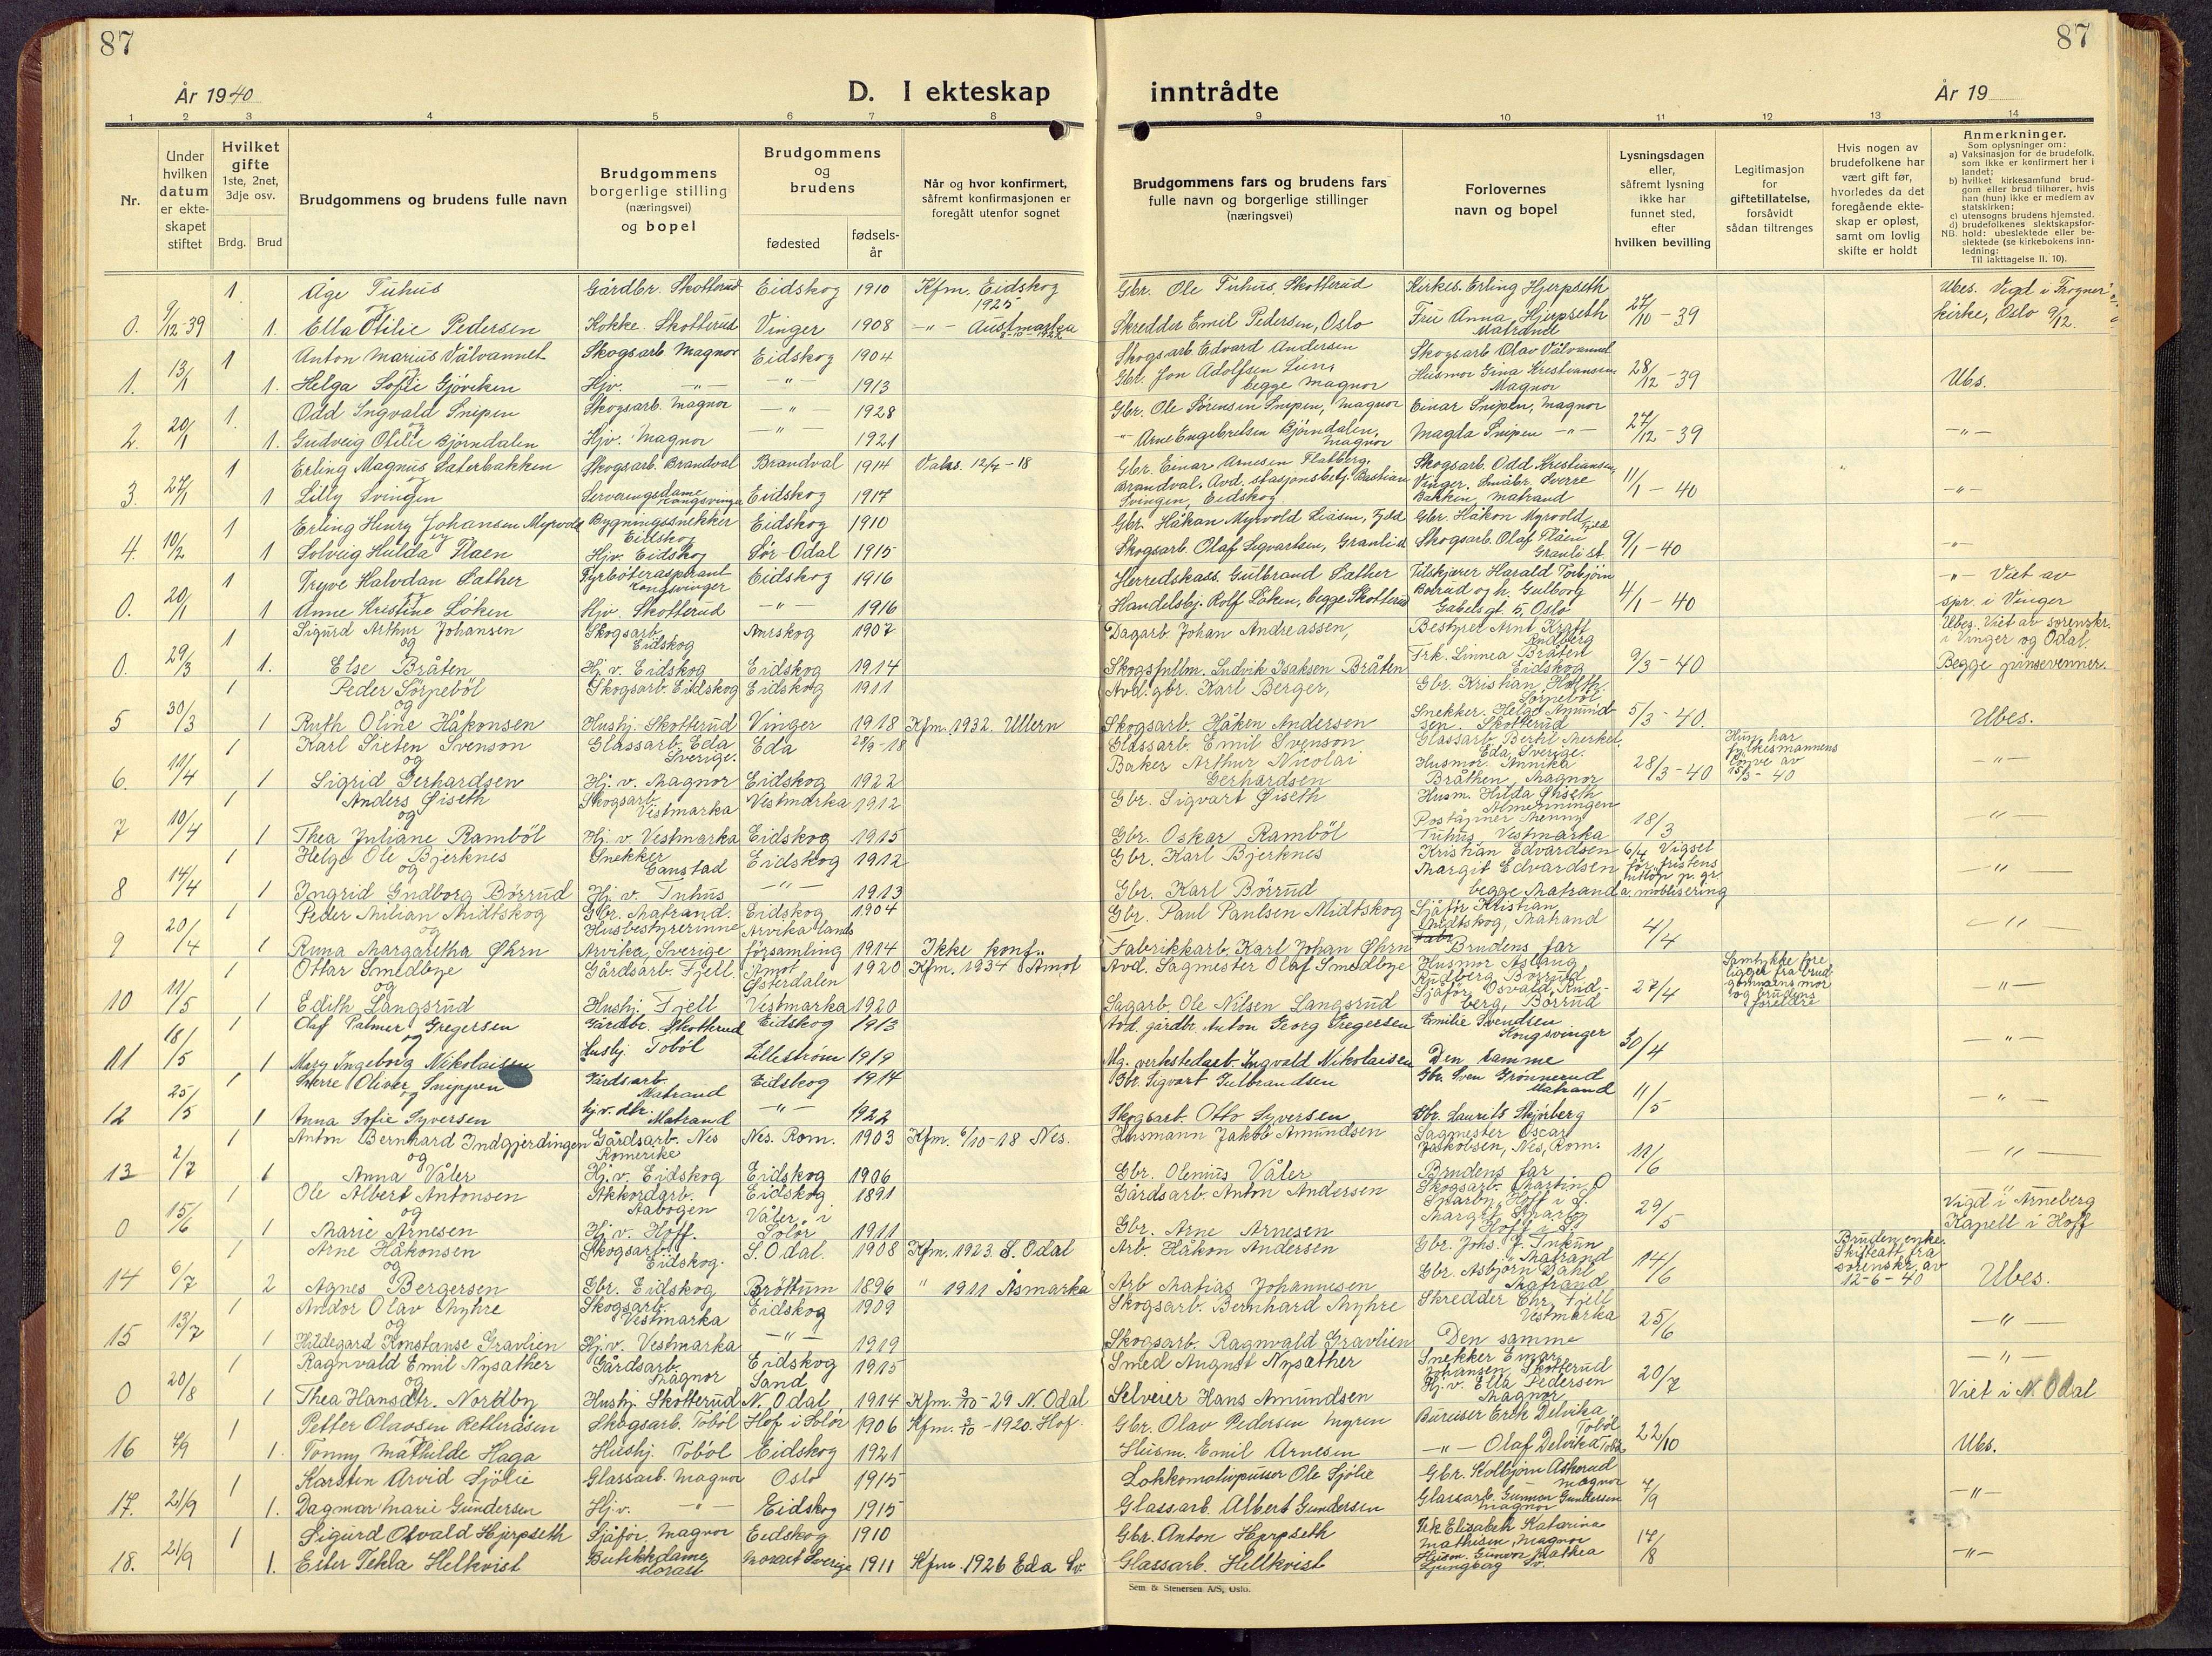 87
87
År 1940
D. I ekteskap inntrådte
År 19
1 2 3 4 5 6 7 8 9 10 11 12 13 14
Nr.
Under hvilken datum er ekteskapet stiftet
Hvilket gifte 1ste, 2net, 3dje osv.
Brdg. Brud
Brudgommens og brudens fulle navn
Brudgommens borgerlige stilling (næringsvei) og bopel
Brudgommens og brudens
fødested
fødsels-år
Når og hvor konfirmert, såfremt konfirmasjonen er foregått utenfor sognet
Brudgommens fars og brudens fars fulle navn og borgerlige stillinger (næringsvei)
Forlovernes navn og bopel
Lysningsdagen eller, såfremt lysning ikke har funnet sted, efter hvilken bevilling
Legitimasjon for giftetillatelse, forsåvidt sådan tiltrenges
Hvis nogen av brudefolkene har vært gift før, hvorledes da det foregående ekteskap er opløst, samt om lovlig skifte er holdt
Anmerkninger.
Som oplysninger om:
a) Vaksinasjon for de brudefolk, som ikke er konfirmert her i landet;
b) hvilket kirkesamfund brudgom eller brud tilhører, hvis han (hun) ikke er medlem av statskirken;
c) utensogns brudens hjemsted.
d) brudefolkenes slektskapsforhold: ubeslektede eller beslektede (se kirkebokens innledning:
NB.
Til iakttagelse II. 10).
1 Åge Tuhus Gårdbr. Skotterud Eidskog 1910 Kfm. Eidskog 1925 Gbr. Ole Tuhus, Skotterud Kirkes. Erling Hjerpseth Ubes. Vigd i Frogner
0. 9/12-39 og 1. Ella Otilie Pedersen Kokke. Skotterud Vinger 1908 -"- Austmarka Skredder Emil Pedersen, Oslo Fru Anna Hjerpseth Matrand 27/10-39 kirke, Oslo 9/12.
1 Anton Marius Vålvannet Skogsarb. Magnor Eidskog 1904 Skogsarb. Edvard Andersen Skogsarb. Olav Vålvannet
1. 13/1 1. Helga Sofie Gjøviken Hjv. -"- -"- 1913 Gbr. Jon Adolfsen Lien, begge Magnor Husmor Gina Kristiansen Magnor 28/12-39 Ubs.
1. Odd Ingvald Snipen Skogsarb. Magnor -"- 1928 Gbr. Ole Sørensen Snipen, Magnor Einar Snipen, Magnor
2. 20/1 og 1. Gudveig Otilie Bjørndalen Hjv. Magnor -"- 1921 -"- Arne Engebretsen Bjørndalen, Magnor Magda Snipen -"- 27/12-39 -"-
1 Erling Magnus Sæterbakken Skogsarb. Brandval Brandval 1914 Vaks. 12/7-18 Gbr. Einar Arnesen Flatberg, Brandval. Skogsarb. Odd Kristiansen, Vinger.
3. 27/1 og 1 Lilly Svingen Serveringsdame Kongsvinger Eidskog 1917 Avd. stasjonsbetj. Bastian Svingen, Eidskog Småbr. Sverre Bakken, Matrand 11/1-40 -"-
1 Erling Henry Johansen Myrvold Bygningssnekker Eidskog Eidskog 1910 Gbr. Håkan Myrvold Liåsen, Fjeld Gbr. Håkon Myrvold, Fjeld
4. 10/2 og 1 Solveig Hulda Flaen Hjv. Eidskog Sør-Odal 1915 Skogsarb. Olaf Sigvartsen, Granli st. Skogsarb. Olaf Flåen Granli st. 9/1-40 -"-
1 Tryve Halvdan Sæther Fyrbøteraspirant Kongsvinger Eidskog 1916 Herredskass. Gulbrand Sæther Tilskjærer Harald Torbjørn -"- Viet av
0. 20/1 og 1 Anne Kristine Løken Hjv. Skotterud -"- 1916 Handelsbj. Rolf Løken, begge Skotterud Botrud og h. Gulborg Gabels gt. 5, Oslo 4/1-40 spr. i Vinger
1 Sigurd Arthur Johansen Skogsarb. Eidskog Aurskog 1907 Dagarb. Johan Andreassen, Bestyrer Arnt Kraft Rudberg Ubes. Viet av sorenskr. i Vinger og Odal.
0. 29/3 og 1. Else Bråten Hj.v. Eidskog Eidskog 1914 Skogsfullm. Ludvik Isaksen Bråten Frk. Linnea Bråten Eidskog 9/3-40 Begge pinsevenner.
1 Peder Sørpebøl Skogsarb. Eidskog Eidskog 1911 Avd. gbr. Karl Berger, Gbr. Kristian Holth, Sørpebøl
5 30/3 og 1 Ruth Oline Håkonsen Hushj. Skotterud Vinger 1918 Kfm. 1932. Ullern Skogsarb. Håken Andersen Snekker. Helge Amundsen. Skotterud 5/3-40. Ubes.
1 Karl Sixten Svenson Glassarb. Eda Sverige. Eda 28/9-18 Glassarb. Emil Svenson Glassarb. Bertil Merkel, Eda, Sverige. Hun har fylkesmannens
6. 11/4 og 1 Sigrid Gerhardsen Hj.v. Magnor Eidskog 1922 Baker Arthur Nicolai Gerhardsen Husmor. Annika Bråthen, Magnor 28/3-40 løyve av 15/3-40 -"-
1 Anders Øiseth Skogsarb. Vestmarka Vestmarka 1912 Gbr. Sigvart Øiseth Husm. Hilda Øiseth Almenningen
7 10/4 og 1 Thea Juliane Rambøl Hj.v. Vestmarka Eidskog 1915 Gbr. Oskar Rambøl Poståpner Menny Tuhus, Vestmarka 18/3 -"-
1 Helge Ole Bjerknes Snekker Gaustad Eidskog 1912 Gbr. Karl Bjerknes Kristian Edvardsen 6/4 Vigsel
8 14/4 og 1 Ingrid Gudborg Børrud Hj.v. Tuhus -"- 1913 Gbr. Karl Børrud Margit Edvardsen begge Matrand før fristens utløp p. gr. a. mobilisering -"-
1 Peder Milian Midtskog Gbr. Matrand. Eidskog 1904 Gbr. Paul Paulsen Midtskog Sjåfør Kristian Midtskog, Matrand
9 20/4 og 1 Runa Margaretha Øhrn Husbestyrerinne Arvika, Sverige Arvika lands församling 1914 Ikke konf. Fabrikkarb. Karl Johan Øhrn Brudens far 4/4 -"-
1 Ottar Smedbye Gårdsarb. Fjell Åmot Østerdalen 1920 Kfm. 1934 Åmot Avd. Sagmester Olaf Smedbye Husmor Aslaug Rudberg, Børrud Samtykke foreligger fra brudgommens mor
10 11/5 og 1 Edith Langsrud Hushj. Fjell Vestmarka 1920 Sagarb. Ole Nilsen Langsrud Sjåfør Osvald Rudberg, Børrud 27/4 og brudens foreldre -"-
1 Olaf Palmer Gregersen Gårdbr. Skotterud Eidskog 1913 Avd. gårdbr. Anton Georg Gregersen Emilie Svendsen Kongsvinger
11 18/5 og 1 Mary Ingeborg Nikolaisen Hushj. Tobøl Lillestrøm 1919 Mg. verkstedarb. Ingvald Nikolaisen Den samme 30/4 -"-
1 Sverre Oliver Sneppen Gårdsarb. Matrand Eidskog 1914 Gbr. Sigvart Gulbrandsen Gbr. Sven Grønnerud Matrand
12 25/5 og 1 Anna Sofie Syversen Hj.v. dtr. Matrand -"- 1922 Skogsarb. Otto Syversen Gbr. Laurits Skjørberg 11/5 -"-
1 Anton Bernhard Indgjerdingen Gårdsarb. Nes Romerike Nes. Rom. 1903 Kfm. 6/10-18 Nes. Husmann Jakob Amundsen Sagmester Oscar Jakobsen, Nes, Rom.
13 2/7 og 1 Anna Våler Hj.v. Eidskog Eidskog 1906 Gbr. Olenius Våler Brudens far 11/6 -"-
1 Ole Albert Antonsen Akkordarb. Aabogen Eidskog 1891 Gårdsarb. Anton Andersen Skogsarb. Martin O Snarby, Hoff i S. -"-
0 15/6 og 1 Marie Arnesen Hj.v. Hoff. Våler i Solør 1911 Gbr. Arne Arnesen Margit Snarby Hoff i S. 29/5 Vigd i Arneberg Kapell i Hoff
1 Arne Håkonsen Skogsarb. Eidskog. S. Odal. 1908 Kfm. 1923. S. Odal Arb. Håkon Andersen Gbr. Johs. J. Tukun Matrand Bruden enke. Skifteatt. fra
14 6/7 og 2 Agnes Bergersen Gbr. Eidskog Brøttum 1896 " 1911 Åsmarka Arb Matias Johannesen Gbr. Asbjørn Dahl Matrand 14/6 sorenskr. av 12-6-40 Ubes.
1 Andor Olav Myhre Skogsarb. Vestmarka Eidskog 1909 Skogsarb. Bernhard Myhre Skredder Chr. Fjell Vestmarka
15 13/7 og 1 Hildegard Konstanse Gravlien Hj.v. Vestmarka -"- 1919 Skogsarb. Ragnvald Gravlien Den samme 25/6 -"-
1 Ragnvald Emil Nysæther Gårdsarb. Magnor Eidskog 1915 Smed August Nysæther Snekker Einar Johansen, Skotterud -"-
0 20/8 og 1 Thea Hansdtr. Nordby Hushj. Skotterud Sand N. Odal 1914 Kfm. 3/10-29 N. Odal Selveier Hans Amundsen Hj.v. Ella Pedersen Magnor 20/7 Viet i N. Odal
1 Petter Olavsen Retteråsen Skogsarb. Tobøl Hof i Solør 1906 Kfm. 3/10-1920. Hof. Gbr. Olav Pedersen Myren Buruiser Erik Delvika. Tobøl
16 4/9 1. Tonny Mathilde Haga Hushj. Tobøl Eidskog 1921 Husm. Emil Arnesen -"- Olaf Delvika Tobøl 22/10 Ubs.
1 Karsten Arvid Sjølie Glassarb. Magnor Oslo 1915 Lokkomotivpusser Ole Sjølie Gbr. Kolbjørn Askerud Magnor
17. 21/9 1. Dagmar Marie Gundersen Hj.v. -"- Eidskog 1915 Glassarb. Albert Gundersen Glassarb. Gunnar Gundersen Magnor 7/9 -"-
1 Sigurd Osvald Hjerpseth Sjåfør, Magnor Eidskog 1910 Gbr. Anton Hjerpseth Frk Elisabeth Katarina Mathisen, Magnor
18. 21/9 1. Ester Tekla Hellkvist Butikkdame Morast Morast Sverige 1911 Kfm. 1926 Eda Sv. Glassarb. Hellkvist Husm. Gunvor Mathea Ljungberg Sv. 17/8 -"-
Sem & Stenersen A/S, Oslo.